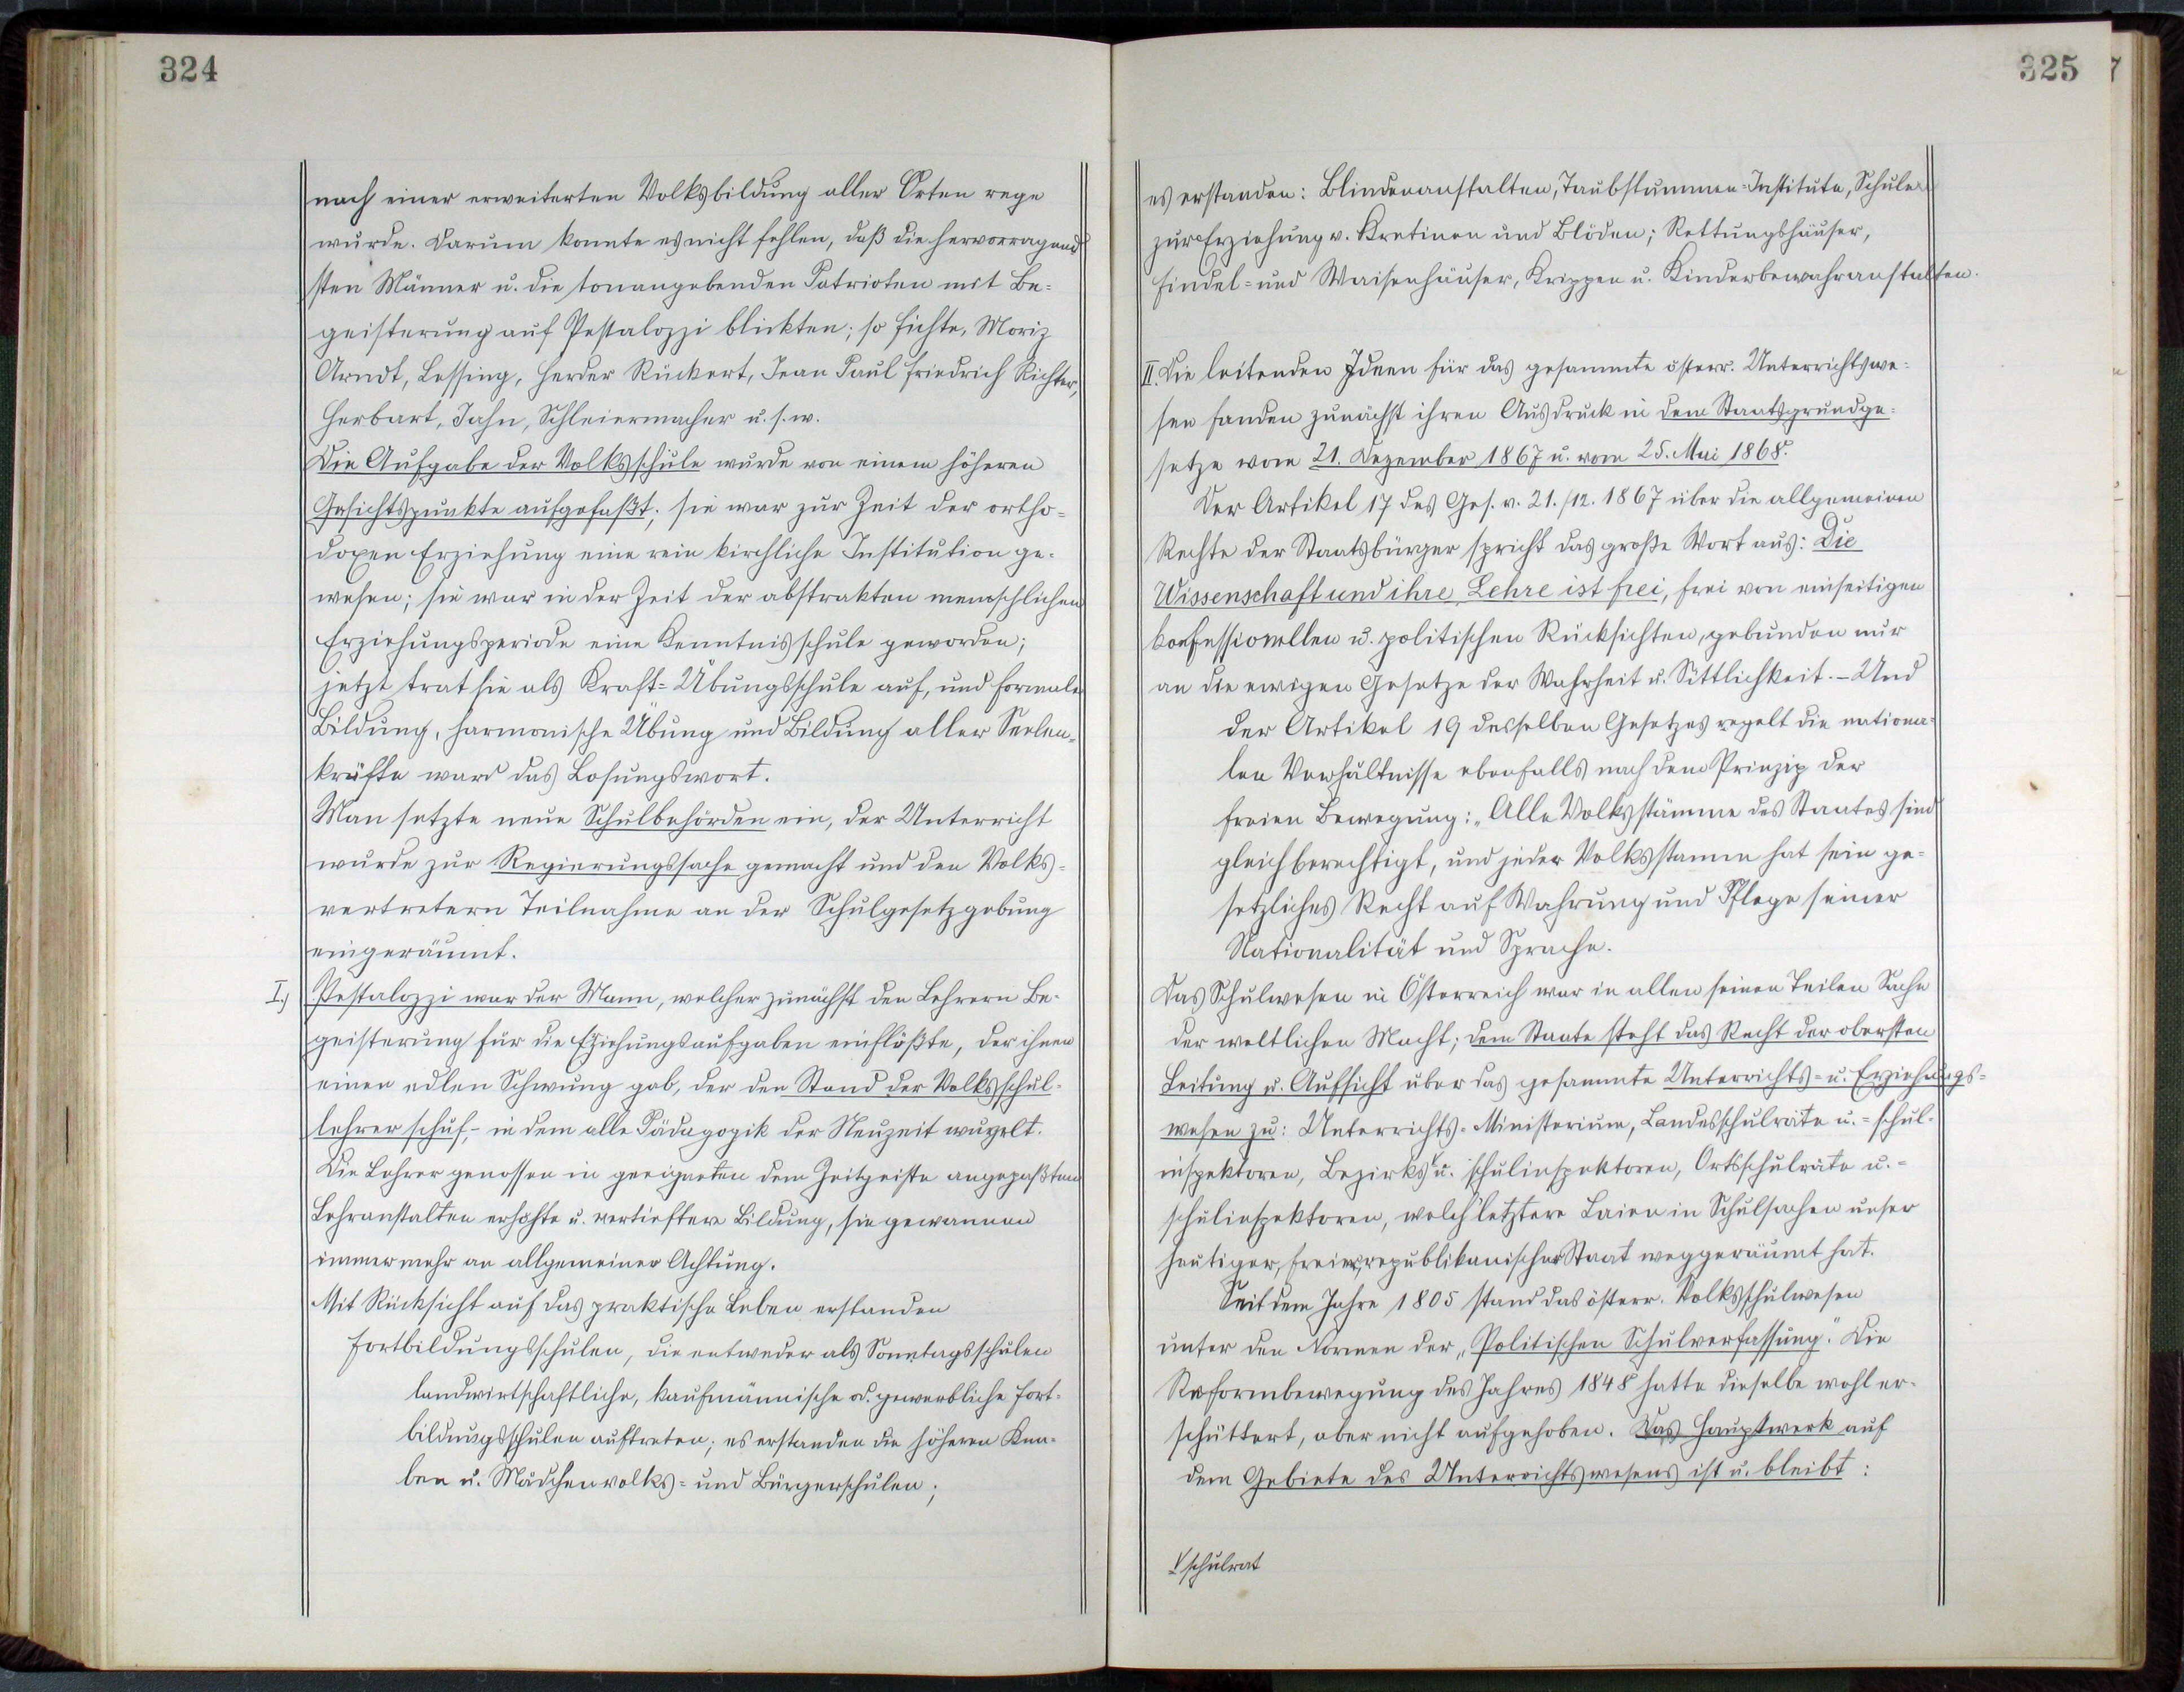 324
nach einer erweiterten Volksbildung aller Orten rege
wurde. Darum konnte es nicht fehlen, daß die hervorragend
sten Männer u. die tonangebenden Patrioten mit Be=
geisterung auf Pestalozzi blickten; so Fichte, Moriz
Arndt, Lessing, Herder Rückert, Jean Paul Friedrich Richter,
Herbart, Jahn, Schleiermacher u. s. w.
Die Aufgabe der Volksschule wurde von einem höheren
Gesichtspunkte aufgefaßt; sie war zur Zeit der ortho=
doxen Erziehung eine rein kirchliche Institution ge=
wesen; sie war in der Zeit der abstrakten menschlichen
Erziehungsperiode eine Kenntnisschule geworden;
jetzt trat sie als Kraft=Übungsschule auf, und formale
Bildung, harmonische Übung und Bildung aller Seelen=
kräfte ward das Losungswort.
Man setzte neue Schulbehörden ein, der Unterricht
wurde zur Regierungssache gemacht und den Volks=
vertretern Teilnahme an der Schulgesetzgebung
eingeräumt.
I.) Pestalozzi war der Mann, welcher zunächst den Lehrern Be=
geisterung für die Erziehungsaufgaben einflößte, der ihnen
einen edlen Schwung gab, der den Stand der Volksschul=
lehrer schuf,- in dem alle Pädagogik der Neuzeit wurzelt.
Die Lehrer genossen in geeigneten dem Zeitgeiste angepaßten
Lehranstalten erhöhte u. vertieftere Bildung, sie gewannen
immer mehr an allgemeiner Achtung.
Mit Rücksicht auf das praktische Leben erstanden
Fortbildungsschulen, die entweder als Sonntagsschulen
landwirtschaftliche, kaufmännische od. gewerbliche Fort=
bildungsschulen auftreten; es erstanden die höheren Kna=
ben u. Mädchenvolks= und Bürgerschulen;
325
es erstanden: Blindenanstalten, Taubstummen=Institute, Schulen
zur Erziehung v. Kretinen und Blöden; Rettungshäuser,
Findel= und Waisenhäuser, Krippen u. Kinderbewahranstalten.
II. Die leitenden Ideen für das gesammte österr. Unterrichtswe=
sen fanden zunächst ihren Ausdruck in dem Staatsgrundge=
setze vom 21. Dezember 1867 u. vom 25. Mai 1868.
Der Artikel 17 des Ges. v. 21./12. 1867 über die allgemeinen
Rechte der Staatsbürger spricht das große Wort aus: Die
Wissenschaft und ihre Lehre ist frei, frei von einseitigen
konfessionellen u. politischen Rücksichten, gebunden nur
an die ewigen Gesetze der Wahrheit u. Sittlichkeit. - Und
der Artikel 19 desselben Gesetzes regelt die nationa=
len Verhältnisse ebenfalls nach dem Prinzip der
freien Bewegung: „Alle Volksstämme des Staates sind
gleichberechtigt, und jeder Volksstamm hat sein ge=
setzliches Recht auf Wahrung und Pflege seiner
Nationalität und Sprache.
Das Schulwesen in Österreich war in allen seinen Teilen Sache
der weltlichen Macht; dem Staate steht das Recht der obersten
Leitung u. Aufsicht über das gesammte Unterrichts= u. Erziehungs=
wesen zu: Unterrichts=Ministerium, Landesschulräte u. =schul=
inspektoren, Bezirks√ u. schulinspektoren, Ortsschulräte u. =
schulinspektoren, welch' letztere Laien in Schulsachen unser
heutiger, freier, republikanischer Staat weggeräumt hat.
Seit dem Jahre 1805 stand das österr. Volksschulwesen
unter den Normen der „Politischen Schulverfassung". Die
Reformbewegung des Jahres 1848 hatte dieselbe wohl er=
schüttert, aber nicht aufgehoben. Das Hauptwerk auf
dem Gebiete des Unterrichtswesens ist u. bleibt:
√ schulrat